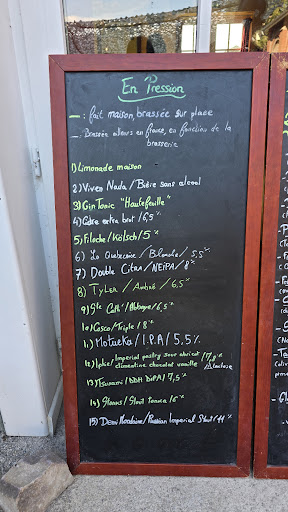 En Pression
_ : fait maison, brassée sur place
_ : Brassée ailleurs en France, en fonction de la
brasserie
1) Limonade maison
2) Viven Nada / Bière sans alcool
3) Gin Tonic "Hautefeuille"
4) Cidre extra brut / 6,5 %
5) Filoche / Kölsch / 5 %
6) La Québécoise / Blanche / 5,5 %
7) Double Citra / NEiPA / 8 %
8) Tyler / Ambré / 6,5 %
9) Ste Cath' / Abbaye / 6,5 %
10) Cosco / Triple / 8 %
11) Motueka / I.P.A / 5,5 %
12) / Imperial pastry sour abricot / 7,8 %
clémentine chocolat vanille
13) Tsunami / DDH DiPA / 7,5 %
14) / Stout / 6 %
15) / Russian Imperial Stout / 11 %